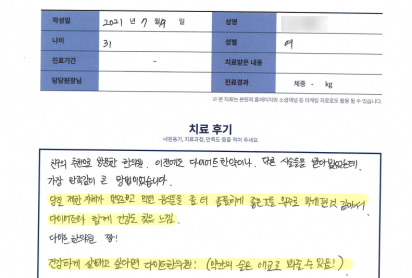 작성일 2021 년 7 월 19 일 성명
나이 31 성별 여
진료기간 - 치료받은 내용
담당원장님 진료경과 체중 - kg
※ 본 자료는 본원의 홈페이지와 소셜채널 등 마케팅 자료로도 활용 될 수 있습니다.
치료 후기
내원동기, 치료과정, 만족도 등을 적어 주세요
친구의 추천으로 방문한 한의원. 이전에도 다이어트한약이나, 다른 시술들을 받아봤었는데,
가장 만족감이 큰 방법이었습니다.
음식을 좀 더 몸에 좋은것들 위주로 먹게된 것 같아서
다이어트와 함께 건강도 찾은 느낌.
다이트한의원 짱!
건강하게 살빼고 싶다면 다이트한의원! (약간의 술은 애교로 봐줄 수 있음!)